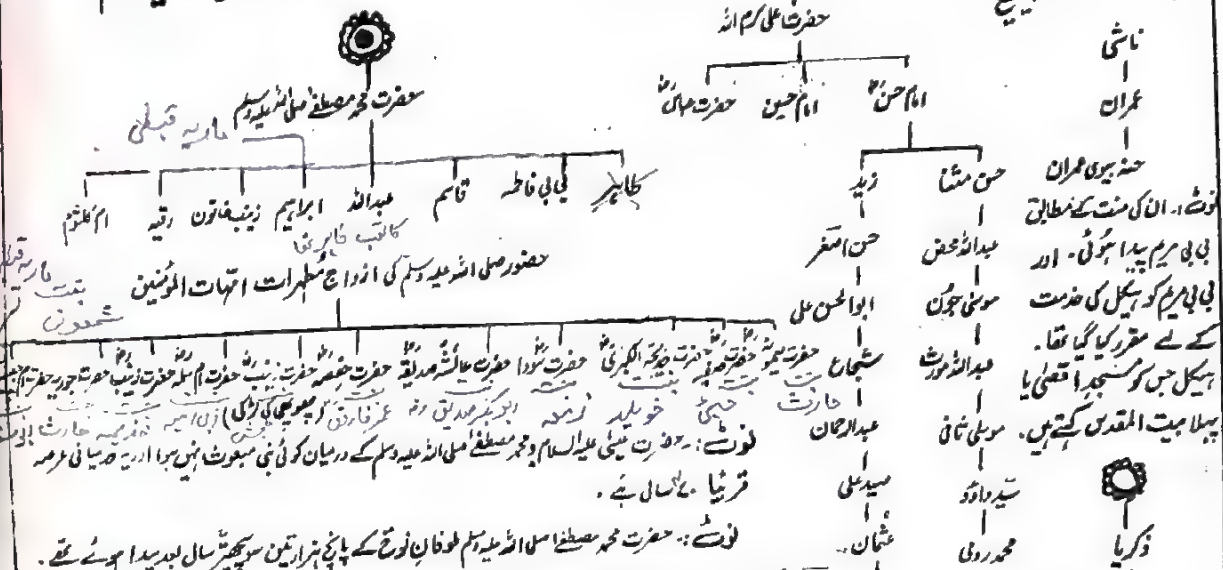 حضرت علی کرم اللہ
امام حسنؓ
امام حسین
حضرت عباسؓ
ناشی
عمران
حنہ بیوی عمران
نوٹ:۔ ان کی منت کے مطابق
بی بی مریم پیدا ہوئی۔ اور
بی بی مریم کو ہیکل کی خدمت
کے لئے مقرر کیا گیا تھا۔
ہیکل جس کو مسجد اقصٰی یا
پہلا بیت المقدس کہتے ہیں۔
ذکریا
حسن مثنا
عبداللہ محض
موسٰی جون
عبداللہ مورث
موسٰی ثانی
سید داؤد
محمد رومی
زید
حسن اصغر
ابوالحسن علی
شجاع
عبدالرحمان
سید علی
عثمان
حضرت محمد مصطفےٰ صلی اللہ علیہ وسلم
ماریہ قبطی
طاہر
بی بی فاطمہ
قاسم
عبداللہ
ابراہیم
زینب خاتون
رقیہ
ام کلثوم
کا لقب طاہر تھا
حضور صلی اللہ علیہ وسلم کی ازواج مطہرات امہات المؤمنین
ماریہ
بنت
شمعون
حضرت میمونہؓ حضرت صفیہؓ حضرت خدیجۃ الکبریٰؓ حضرت سودا حضرت عائشہ صدیقہؓ حضرت حفصہؓ حضرت زینبؓ حضرت ام سلمہؓ حضرت زینبؓ حضرت جویریہ حضرت ام
حارث حیی خویلد زمعہ ابوبکر صدیق عمر فاروق (پھوپھی کی لڑکی) حارث
نوٹ:۔ حضرت عیسیٰ علیہ السلام و محمد مصطفےٰ صلی اللہ علیہ وسلم کے درمیان کوئی نبی مبعوث نہیں ہوا اور یہ درمیانی عرصہ
قریبًا سال ہے۔
نوٹ:۔ حضرت محمد مصطفےٰ صلی اللہ علیہ وسلم طوفانِ نوحؑ کے پانچ ہزار تین سو پچھتر سال بعد پیدا ہوئے تھے۔